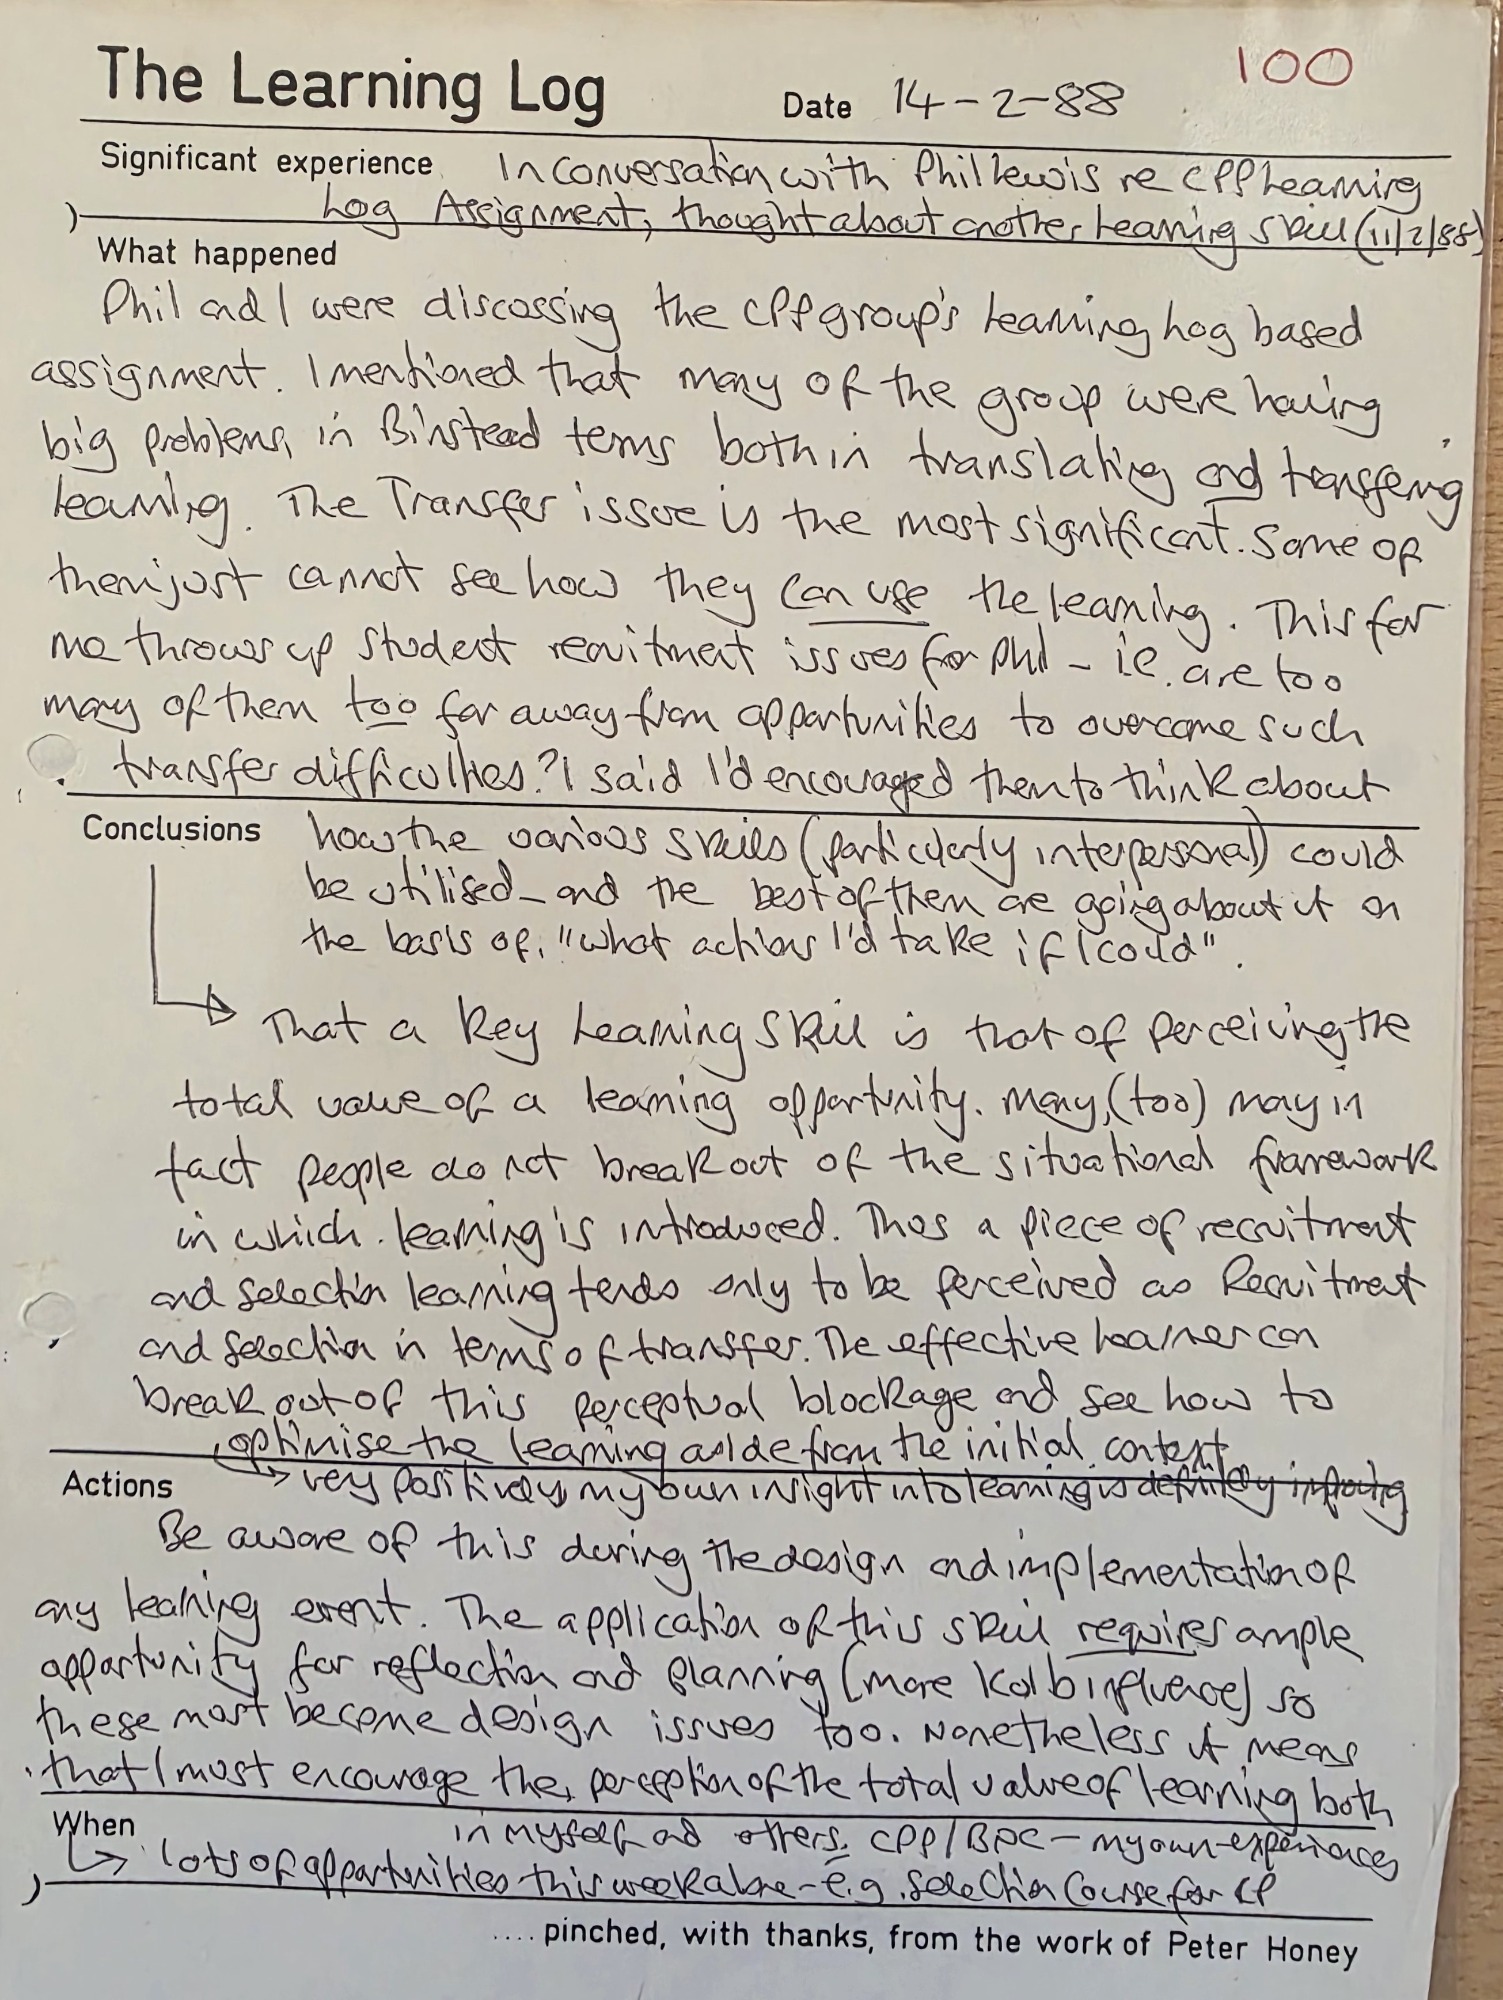 The Learning Log
Date 14-2-88
100
Significant experience In conversation with Phil Lewis re CPP Learning
Log Assignment, thought about another Learning Skill (11/2/88)
What happened
Phil and I were discussing the CPP group's Learning Log based
assignment. I mentioned that many of the group were having
big problems, in Binstead terms both in translating and transfering
learning. The Transfer issue is the most significant. Some of
them just cannot see how they can use the learning. This for
me throws up student recruitment issues for Phil - i.e. are too
many of them too far away from opportunities to overcome such
transfer difficulties? I said I'd encouraged them to think about
Conclusions how the various skills (particularly interpersonal) could
be utilised - and the best of them are going about it on
the basis of, "what actions I'd take if I could".
That a key Learning Skill is that of perceiving the
total value of a learning opportunity. Many, (too) many in
fact people do not break out of the situational framework
in which learning is introduced. Thus a piece of recruitment
and selection learning tends only to be perceived as Recruitment
and selection in terms of transfer. The effective learner can
break out of this perceptual blockage and see how to
optimise the learning aside from the initial context
very positively my own insight into learning is definitely improving
Actions
Be aware of this during the design and implementation of
any learning event. The application of this skill requires ample
opportunity for reflection and planning (more Kolb influence) so
these must become design issues too. Nonetheless it means
that I must encourage the perception of the total value of learning both
in myself and others. CPP/BPC - my own experiences
When
lots of opportunities this week alone - e.g. Selection Course for CP
.... pinched, with thanks, from the work of Peter Honey